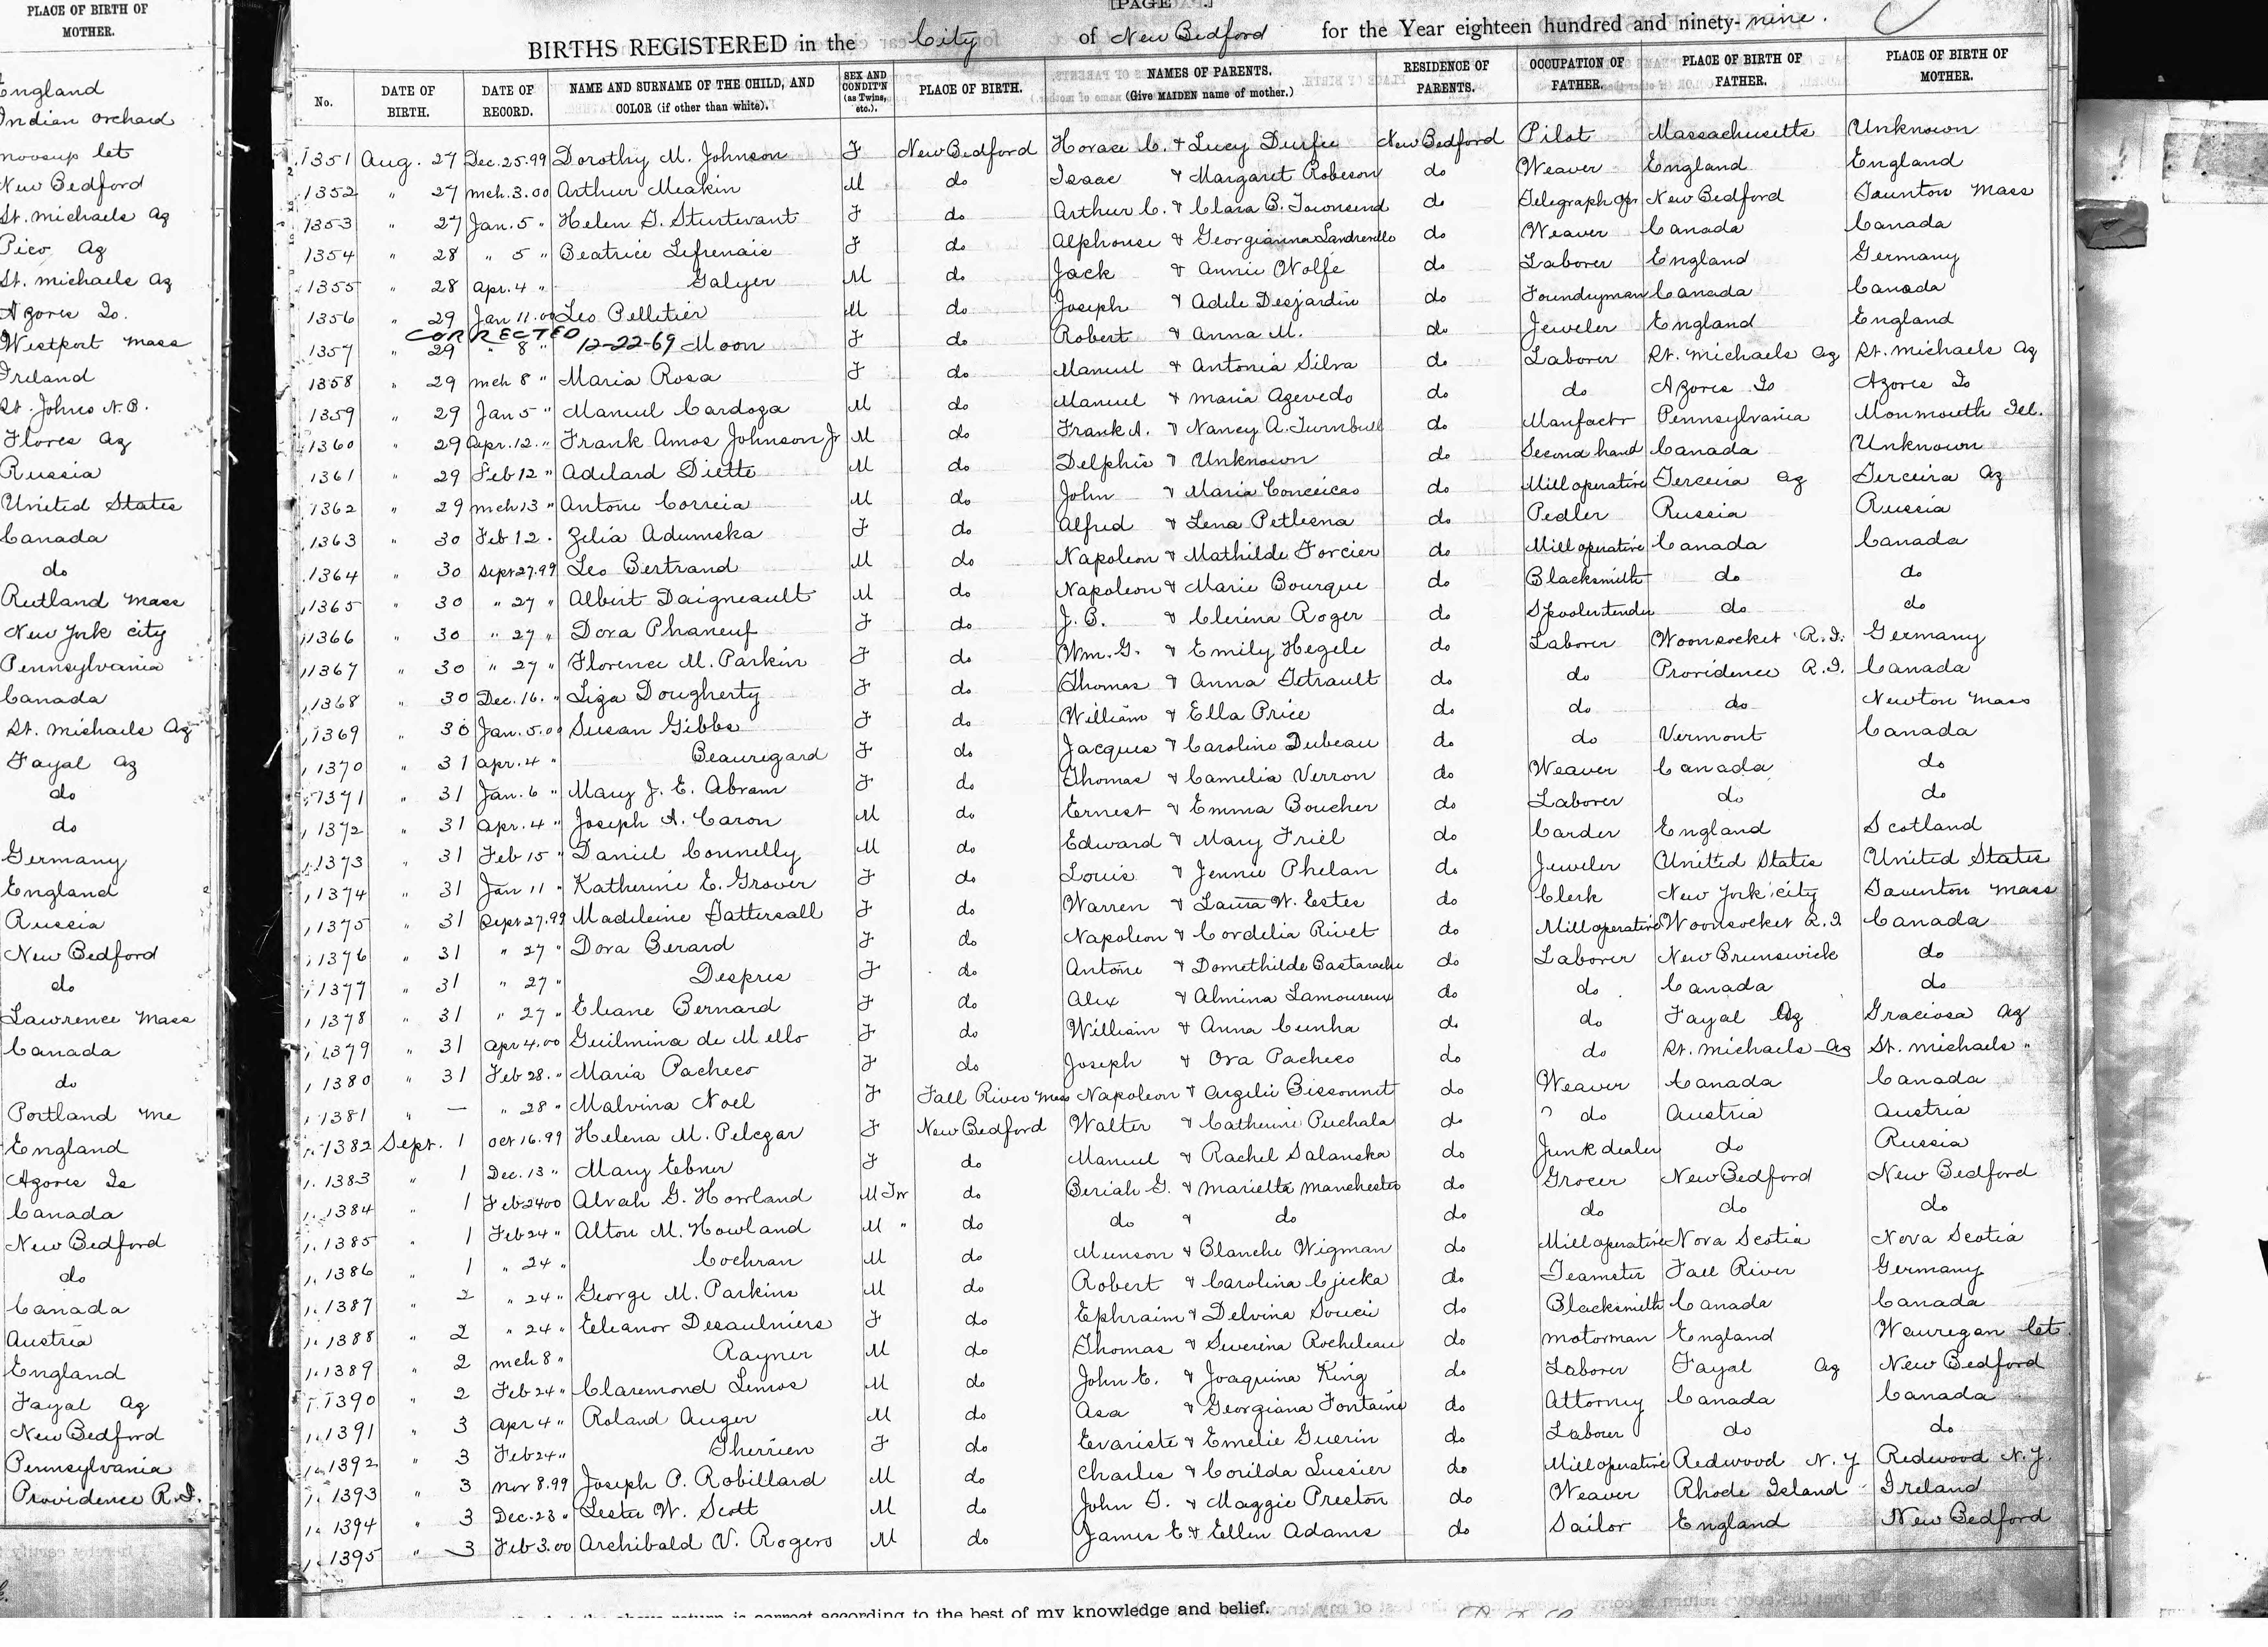 PLACE OF BIRTH OF
MOTHER.
England
Indian Orchard
Moosup Ct
New Bedford
St. Michaels Az
Pico Az
St. Michaels Az
Azores Is.
Westport Mass
Ireland
St. Johns N.B.
Flores Az
Russia
United States
Canada
do
Rutland Mass
New York City
Pennsylvania
Canada
St. Michaels Az
Fayal Az
do
do
Germany
England
Russia
New Bedford
do
Lawrence Mass
Canada
do
Portland Me
England
Azores Is
Canada
New Bedford
do
Canada
Austria
England
Fayal Az
New Bedford
Pennsylvania
Providence R.I.
[PAGE .]
BIRTHS REGISTERED in the City of New Bedford for the Year eighteen hundred and ninety-nine.
No. DATE OF BIRTH. DATE OF RECORD. NAME AND SURNAME OF THE CHILD, AND COLOR (if other than white). SEX AND CONDIT'N (as Twins, etc.). PLACE OF BIRTH. NAMES OF PARENTS. (Give MAIDEN name of mother.) RESIDENCE OF PARENTS. OCCUPATION OF FATHER. PLACE OF BIRTH OF FATHER. PLACE OF BIRTH OF MOTHER.
1351 Aug. 27 Dec. 25.99 Dorothy M. Johnson F New Bedford Horace C. & Lucy Durfee New Bedford Pilot Massachusetts Unknown
1352 " 27 Mch. 3.00 Arthur Meakin M do Isaac & Margaret Robeson do Weaver England England
1353 " 27 Jan. 5 " Helen T. Sturtevant F do Arthur C. & Clara B. Townsend do Telegraph Opr New Bedford Taunton Mass
1354 " 28 " 5 " Beatrice Lefrenais F do Alphonse & Georgianna Landreville do Weaver Canada Canada
1355 " 28 Apr. 4 " Galyer M do Jack & Annie Wolfe do Laborer England Germany
1356 " 29 Jan 11.00 Leo Pelletier M do Joseph & Adele Desjardin do Foundryman Canada Canada
CORRECTED 12-22-69
1357 " 29 " 8 " Moon F do Robert & Anna M. do Jeweler England England
1358 " 29 Mch 8 " Maria Rosa F do Manuel & Antonia Silva do Laborer St. Michaels Az St. Michaels Az
1359 " 29 Jan 5 " Manuel Cardoza M do Manuel & Maria Azevedo do do Azores Is Azores Is
1360 " 29 Apr. 12. " Frank Amos Johnson Jr M do Frank A. & Nancy A. Turnbull do Manfactr Pennsylvania Monmouth Ill.
1361 " 29 Feb 12 " Adelard Diette M do Delphis & Unknown do Second hand Canada Unknown
1362 " 29 Mch 13 " Antone Correia M do John & Maria Conceicao do Mill operative Terceira Az Terceira Az
1363 " 30 Feb 12 . Zelia Adumska F do Alfred & Lena Petlesna do Pedler Russia Russia
1364 " 30 Sept 27.99 Leo Bertrand M do Napoleon & Mathilde Forcier do Mill operative Canada Canada
1365 " 30 " 27 " Albert Daigneault M do Napoleon & Marie Bourque do Blacksmith do do
1366 " 30 " 27 " Dora Phaneuf F do J. B. & Clerina Roger do Spooler tender do do
1367 " 30 " 27 " Florence M. Parkin F do Wm. G. & Emily Hegele do Laborer Woonsocket R.I. Germany
1368 " 30 Dec. 16. " Liza Dougherty F do Thomas & Anna Tetrault do do Providence R.I. Canada
1369 " 30 Jan. 5.00 Susan Gibbs F do William & Ella Price do do do Newton Mass
1370 " 31 Apr. 4 " Beauregard F do Jacques & Caroline Dubeau do do Vermont Canada
1371 " 31 Jan. 6 " Mary J. E. Abram F do Thomas & Camelia Verron do Weaver Canada do
1372 " 31 Apr. 4 " Joseph A. Caron M do Ernest & Emma Boucher do Laborer do do
1373 " 31 Feb 15 " Daniel Connelly M do Edward & Mary Friel do Carder England Scotland
1374 " 31 Jan 11 " Katherine E. Grover F do Louis & Jennie Phelan do Jeweler United States United States
1375 " 31 Sept 27.99 Madeleine Tattersall F do Warren & Laura W. Estes do Clerk New York city Taunton Mass
1376 " 31 " 27 " Dora Berard F do Napoleon & Cordelia Rivet do Mill operative Woonsocket R.I. Canada
1377 " 31 " 27 " Despres F do Antoine & Domethilde Bastarache do Laborer New Brunswick do
1378 " 31 " 27 " Eleane Bernard F do Alex & Almina Lamoureux do do Canada do
1379 " 31 Apr 4.00 Guilmina de Mello F do William & Anna Cunha do do Fayal Az Graciosa Az
1380 " 31 Feb 28. " Maria Pacheco F do Joseph & Ora Pacheco do do St. Michaels Az St. Michaels "
1381 " — " 28 " Malvina Noel F Fall River Mass Napoleon & Angelie Bissonnit do Weaver Canada Canada
1382 Sept. 1 Oct 16.99 Helena M. Pelczar F New Bedford Walter & Catherine Puchala do do Austria Austria
1383 " 1 Dec. 13 " Mary Ebner F do Manuel & Rachel Salanska do Junk dealer do Russia
1384 " 1 Feb 24 00 Alvah G. Howland M Tw do Beriah G. & Marietta Manchester do Grocer New Bedford New Bedford
1385 " 1 Feb 24 " Alton M. Howland M " do do & do do do do do
1386 " 1 " 24 " Cochran M do Munson & Blanche Wigman do Mill operative Nova Scotia Nova Scotia
1387 " 2 " 24 " George M. Parkins M do Robert & Carolina Cjecka do Teamster Fall River Germany
1388 " 2 " 24 " Eleanor Desaulniers F do Ephraim & Delvina Soucie do Blacksmith Canada Canada
1389 " 2 Mch 8 " Rayner M do Thomas & Severina Rocheleau do Motorman England Wauregan Ct.
1390 " 2 Feb 24 " Claremond Lemos M do John E. & Joaquina King do Laborer Fayal Az New Bedford
1391 " 3 Apr 4 " Roland Auger M do Asa & Georgiana Fontaine do Attorney Canada Canada
1392 " 3 Feb 24 " Therrien F do Evariste & Emelie Guerin do Laborer do do
1393 " 3 Nov 8.99 Joseph P. Robillard M do Charles & Corilda Lussier do Mill operative Redwood N.Y Redwood N.Y.
1394 " 3 Dec. 23 " Lester W. Scott M do John T. & Maggie Preston do Weaver Rhode Island Ireland
1395 " 3 Feb 3.00 Archibald V. Rogers M do James E & Ellen Adams do Sailor England New Bedford
return is correct according to the best of my knowledge and belief.